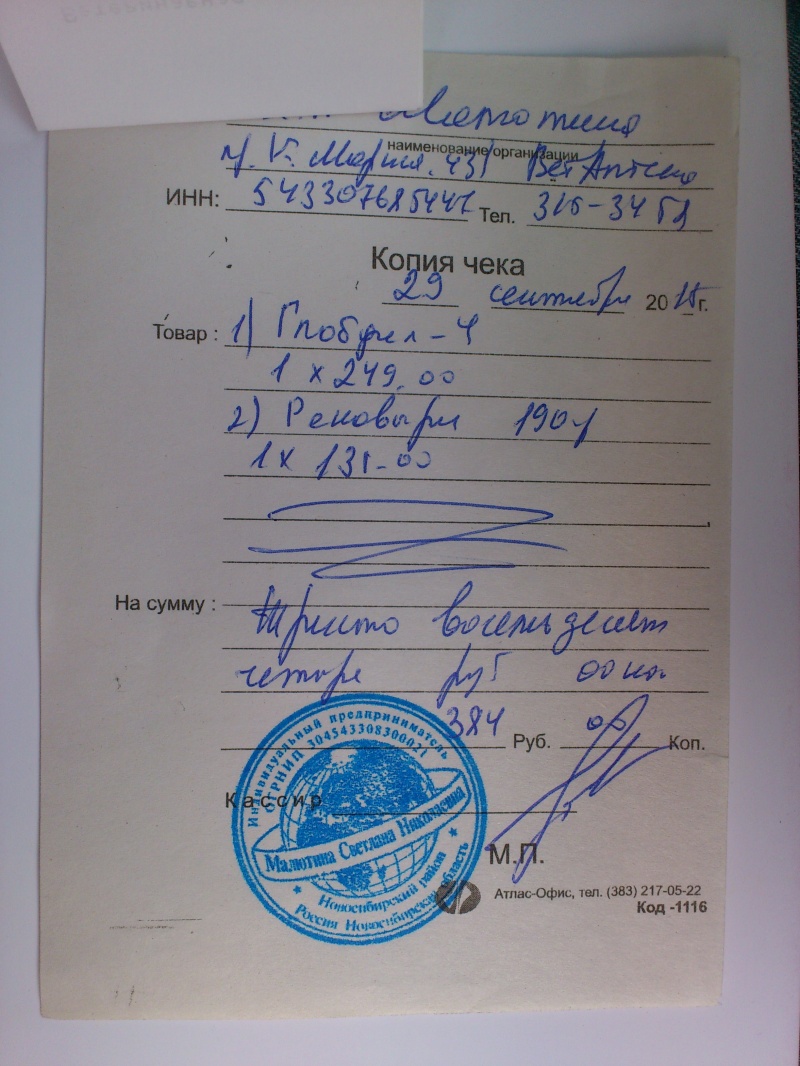 Малютина
наименование организации
ул. К. Маркса, 43/1 ВетАптека
ИНН: 543307685447 Тел. 315-34 51
Копия чека
29 сентября 2015 г.
Товар : 1) Глобфел-4
1 x 249.00
2) Реновыри 190 г
1 x 135-00
На сумму : Триста восемьдесят
четыре руб 00 коп
384 Руб. 00 Коп.
Кассир
М.П.
Индивидуальный предприниматель
ОГРНИП 304543308300021
Малютина Светлана Николаевна
Новосибирский район
Россия Новосибирская область
Атлас-Офис, тел. (383) 217-05-22
Код -1116